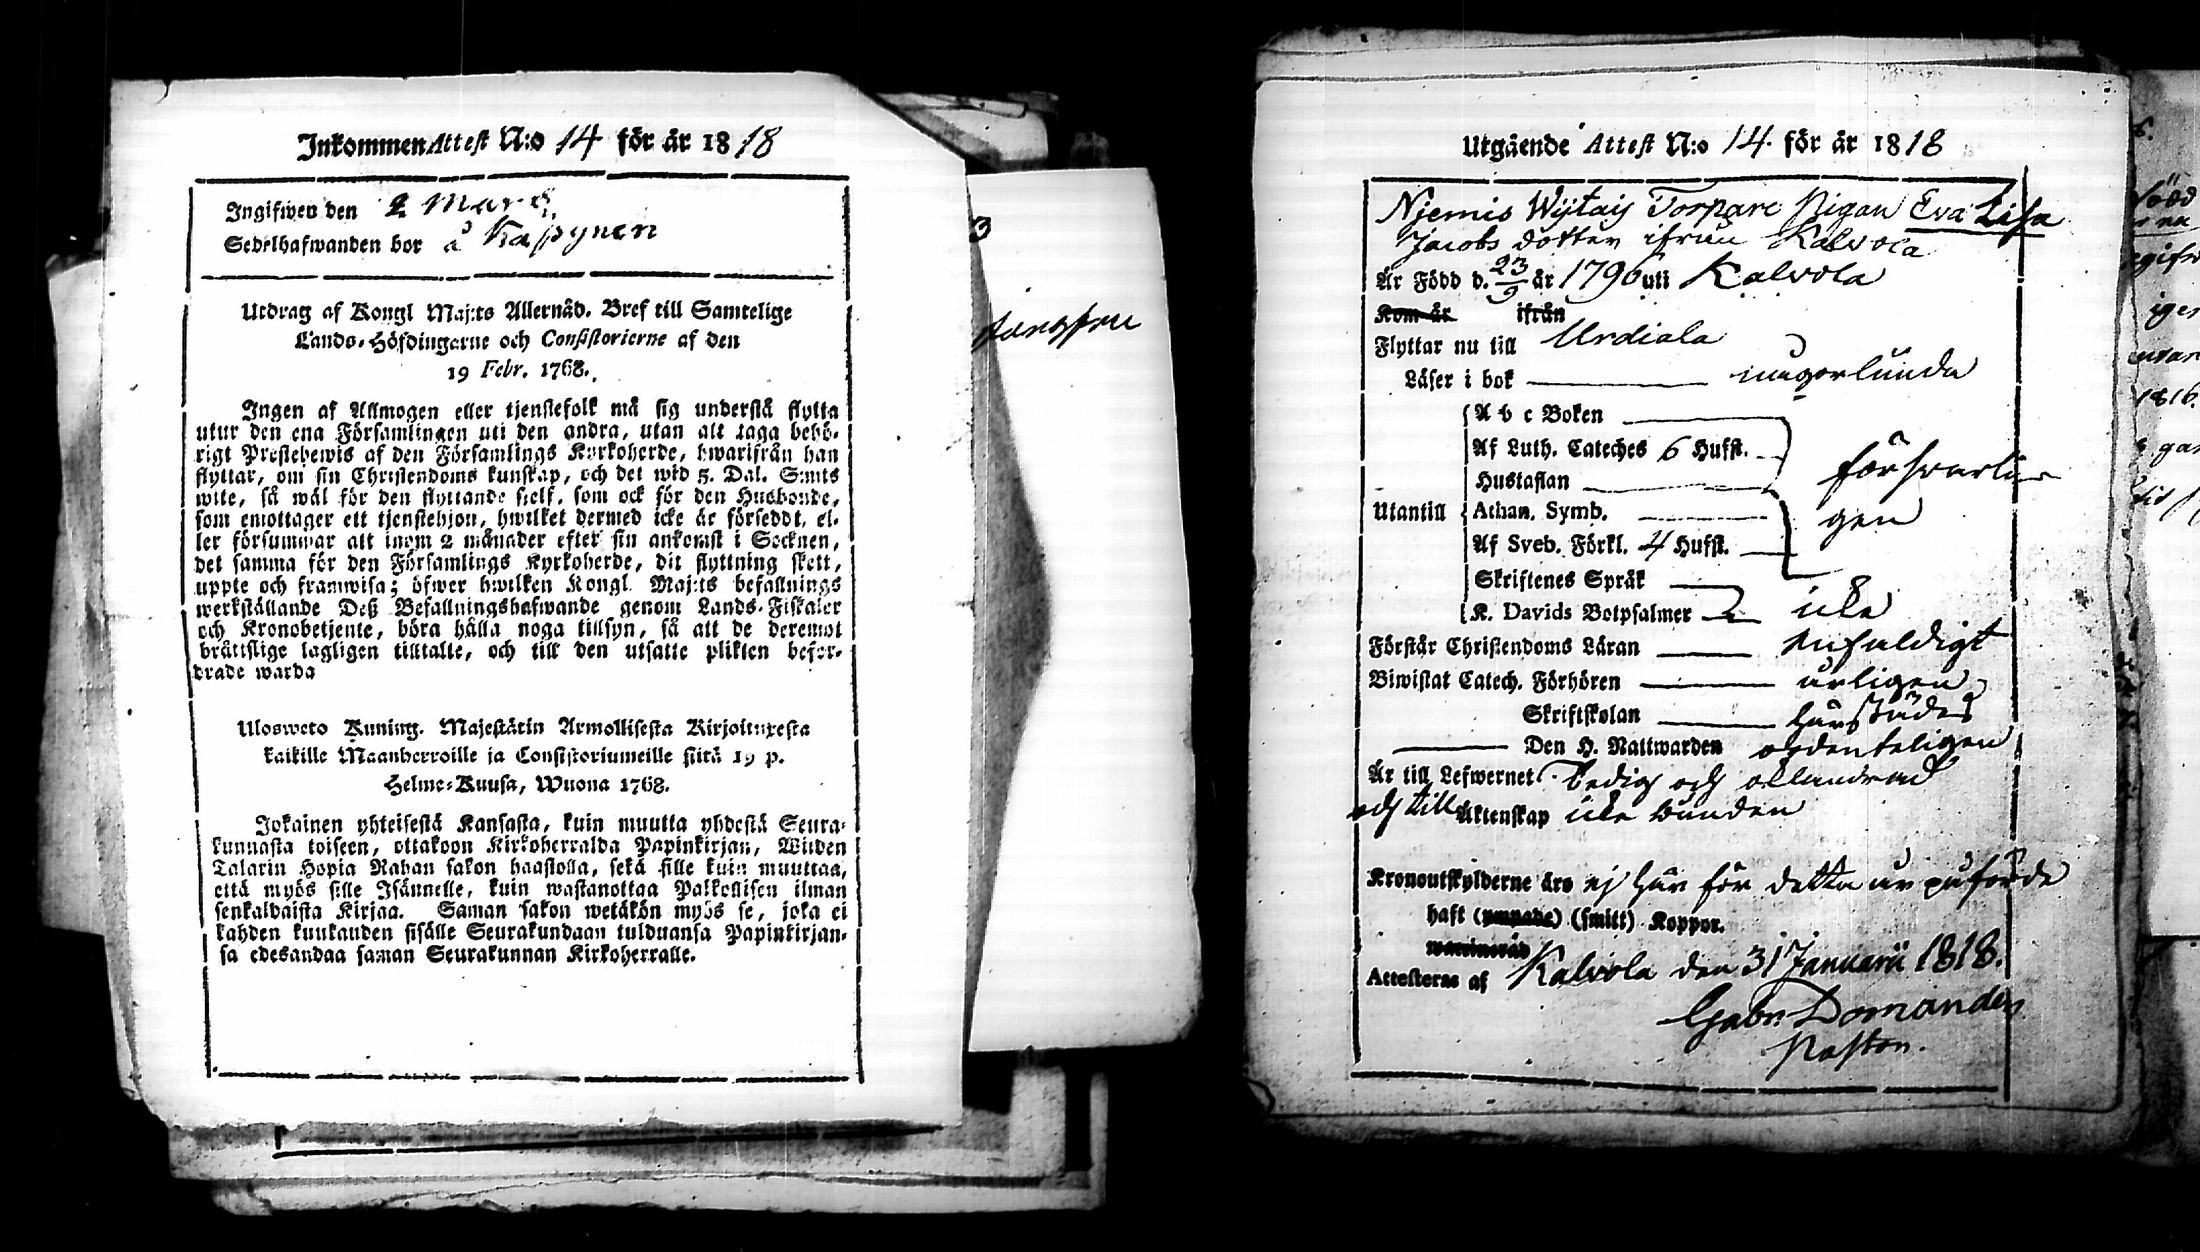 Inkommen Attest N:o 14 för år 1818
Ingifwen den 2 Mars
Sedelhafwanden bor å Kapynen
Utdrag af Kongl Maj:ts Allernåd. Bref till Samtelige
Lands-Höfdingarne och Consistorierne af den
19 Febr. 1768.
Ingen af Allmogen eller tjenstefolk må sig understå flytta
utur den ena Församlingen uti den andra, utan att taga behö-
rigt Prestebewis af den Församlings Kyrkoherde, hwarifrån han
flyttar, om sin Christendoms kunskap, och det wid 5. Dal. S:mts
wite, så wäl för den flyttande sielf, som ock för den Husbonde,
som emottager ett tjenstehjon, hwilket dermed icke är försedt, el-
ler försummar att inom 2 månader efter sin ankomst i Socknen,
det samma för den Församlings Kyrkoherde, dit flyttning skett,
uppte och framwisa; öfwer hwilken Kongl Maj:ts befallnings
werkställande Deß Befallningshafwande genom Lands-Fiskaler
och Kronobetjente, böra hålla noga tillsyn, så att de deremot
bråttslige lagligen tilltalte, och till den utsatte plikten befor-
drade warda
Ulosweto Kuning. Majestätin Armollisesta Kirjoituxesta
kaikille Maanherroille ja Consistoriumeille siitä 19 p.
Helme-Kuusa, Wuona 1768.
Jokainen yhteisestä Kansasta, kuin muutta yhdestä Seura-
kunnasta toiseen, ottakoon Kirkoherralda Papinkirjan, Wiiden
Talarin Hopia Rahan sakon haastolla, sekä sille kuin muuttaa,
että myös sille Isännelle, kuin wastanottaa Palkollisen ilman
senkaldaista Kirjaa. Saman sakon wetäkön myös se, joka ei
kahden kuukauden sisälle Seurakundaan tulduansa Papinkirjan-
sa edesandaa saman Seurakunnan Kirkoherralle.
3
Utgående Attest N:o 14. för år 1818
Njemis Wijtais Torpare Pigan Eva Lisa
Jacobs dotter ifrån Kalvola
Är Född d. 23/9 år 1790 uti Kalvola
Kom år ifrån
Flyttar nu till Urdiala
Läser i bok någorlunda
A b c Boken
Af Luth. Cateches 6 Hufst.
Hustaflan
försvarli-
gen
Utantill
Athan. Symb.
Af Sveb. Förkl. 4 Hufst.
Skriftenes Språk
K. Davids Botpsalmer icke
Förstår Christendoms Läran enfaldigt
Biwistat Catech. Förhören årligen
Skriftskolan härstädes
Den H. Nattwarden ordenteligen
Är till Lefwernet ledig och
och till Äktenskap icke bunden
Kronoutskylderne äro ej här för detta år påförde
haft (ympade) (smitt) Koppor.
Attesteras af Kalvola den 31 Januarii 1818.
Gabr. Domander
Pastor.